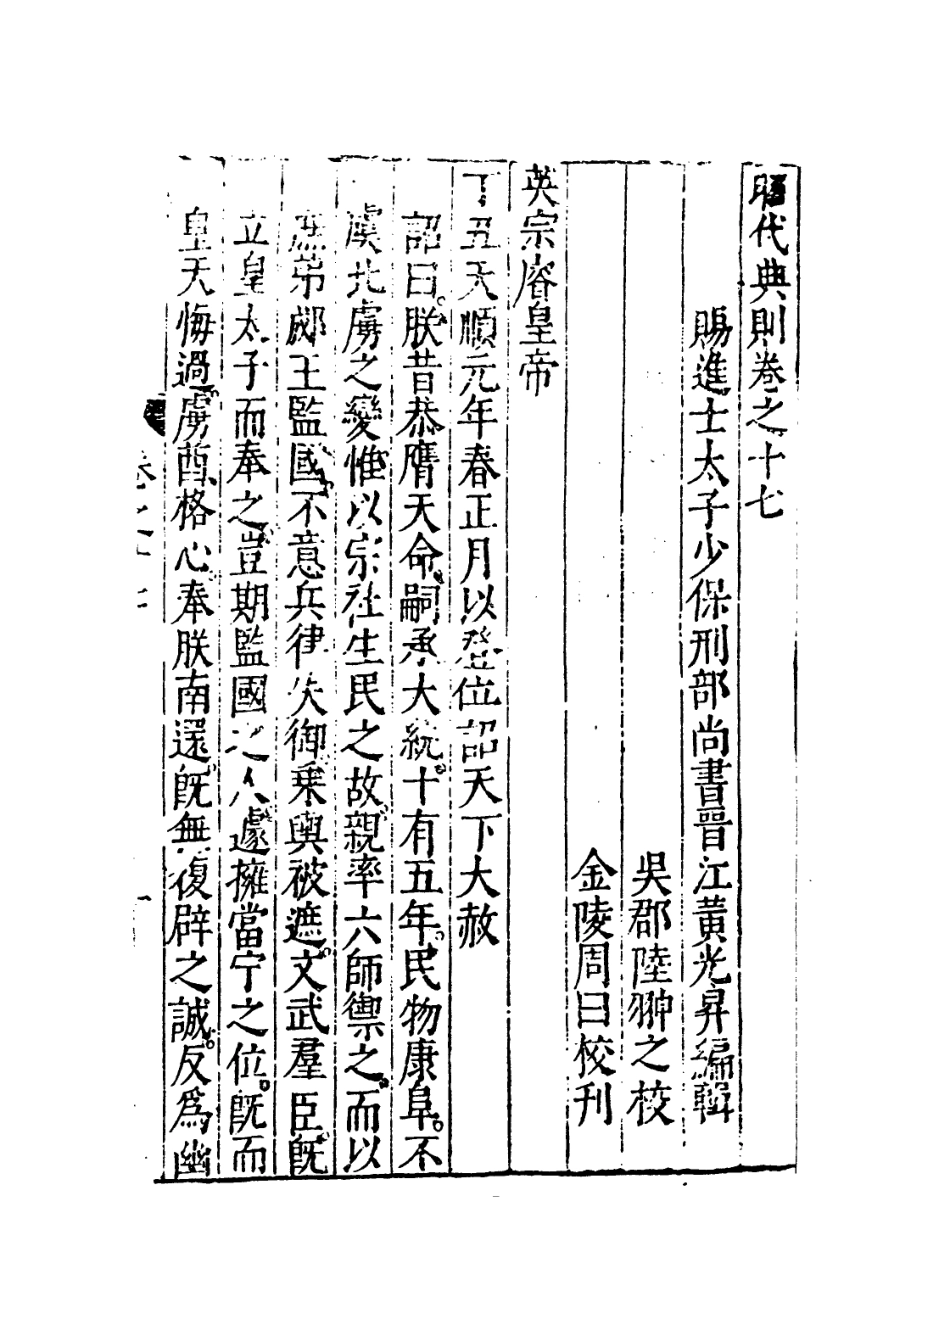 昭代典則卷之十七
賜進士太子少保刑部尚書晉江黃光昇編輯
吳郡陸翀之校
金陵周曰校刊
英宗睿皇帝
丁丑天順元年春正月以登位詔天下大赦
詔曰朕昔恭膺天命嗣承大統十有五年民物康阜不
虞北虜之變惟以宗社生民之故親率六師禦之而以
庶弟郕王監國不意兵律失御乗輿被遮文武羣臣旣
立皇太子而奉之豈期監國之人遽擁當宁之位旣而
皇天悔過虜酋格心奉朕南還旣無復辟之誠反爲幽
卷之十七
一